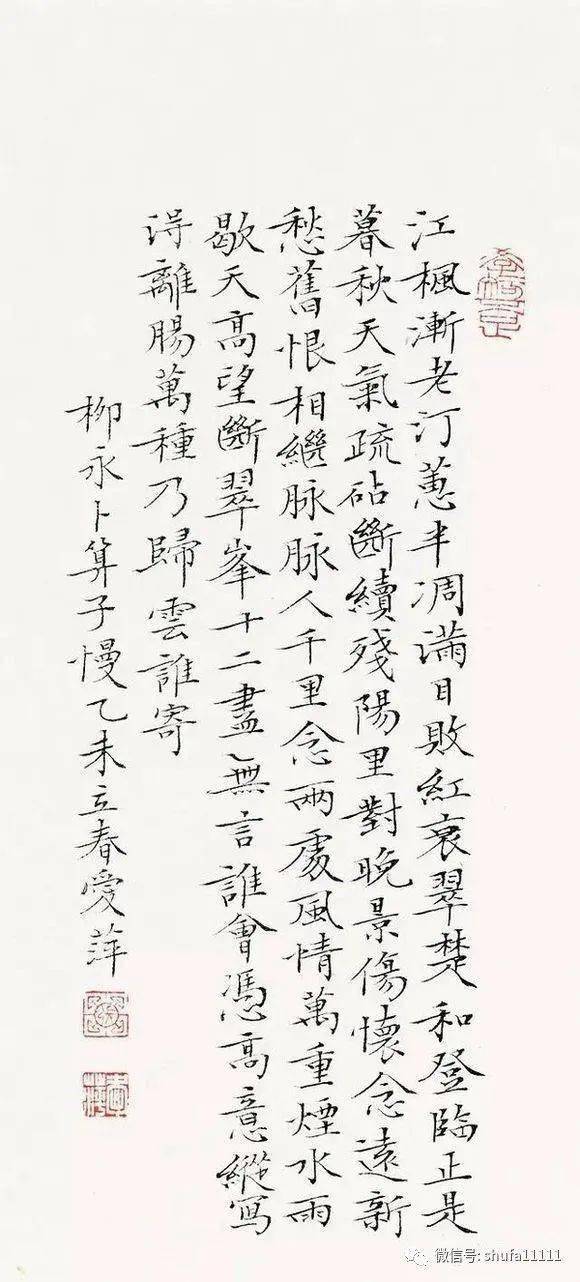 江楓漸老汀蕙半凋滿目敗紅衰翠楚和登臨正是
暮秋天氣疏砧斷續殘陽里對晚景傷懷念遠新
愁舊恨相繼脉脉人千里念兩處風情萬重煙水雨
歇天高望斷翠峯十二盡無言誰會憑高意縱寫
得離腸萬種乃歸雲誰寄
柳永卜算子慢乙未立春愛萍
微信号: shufa11111